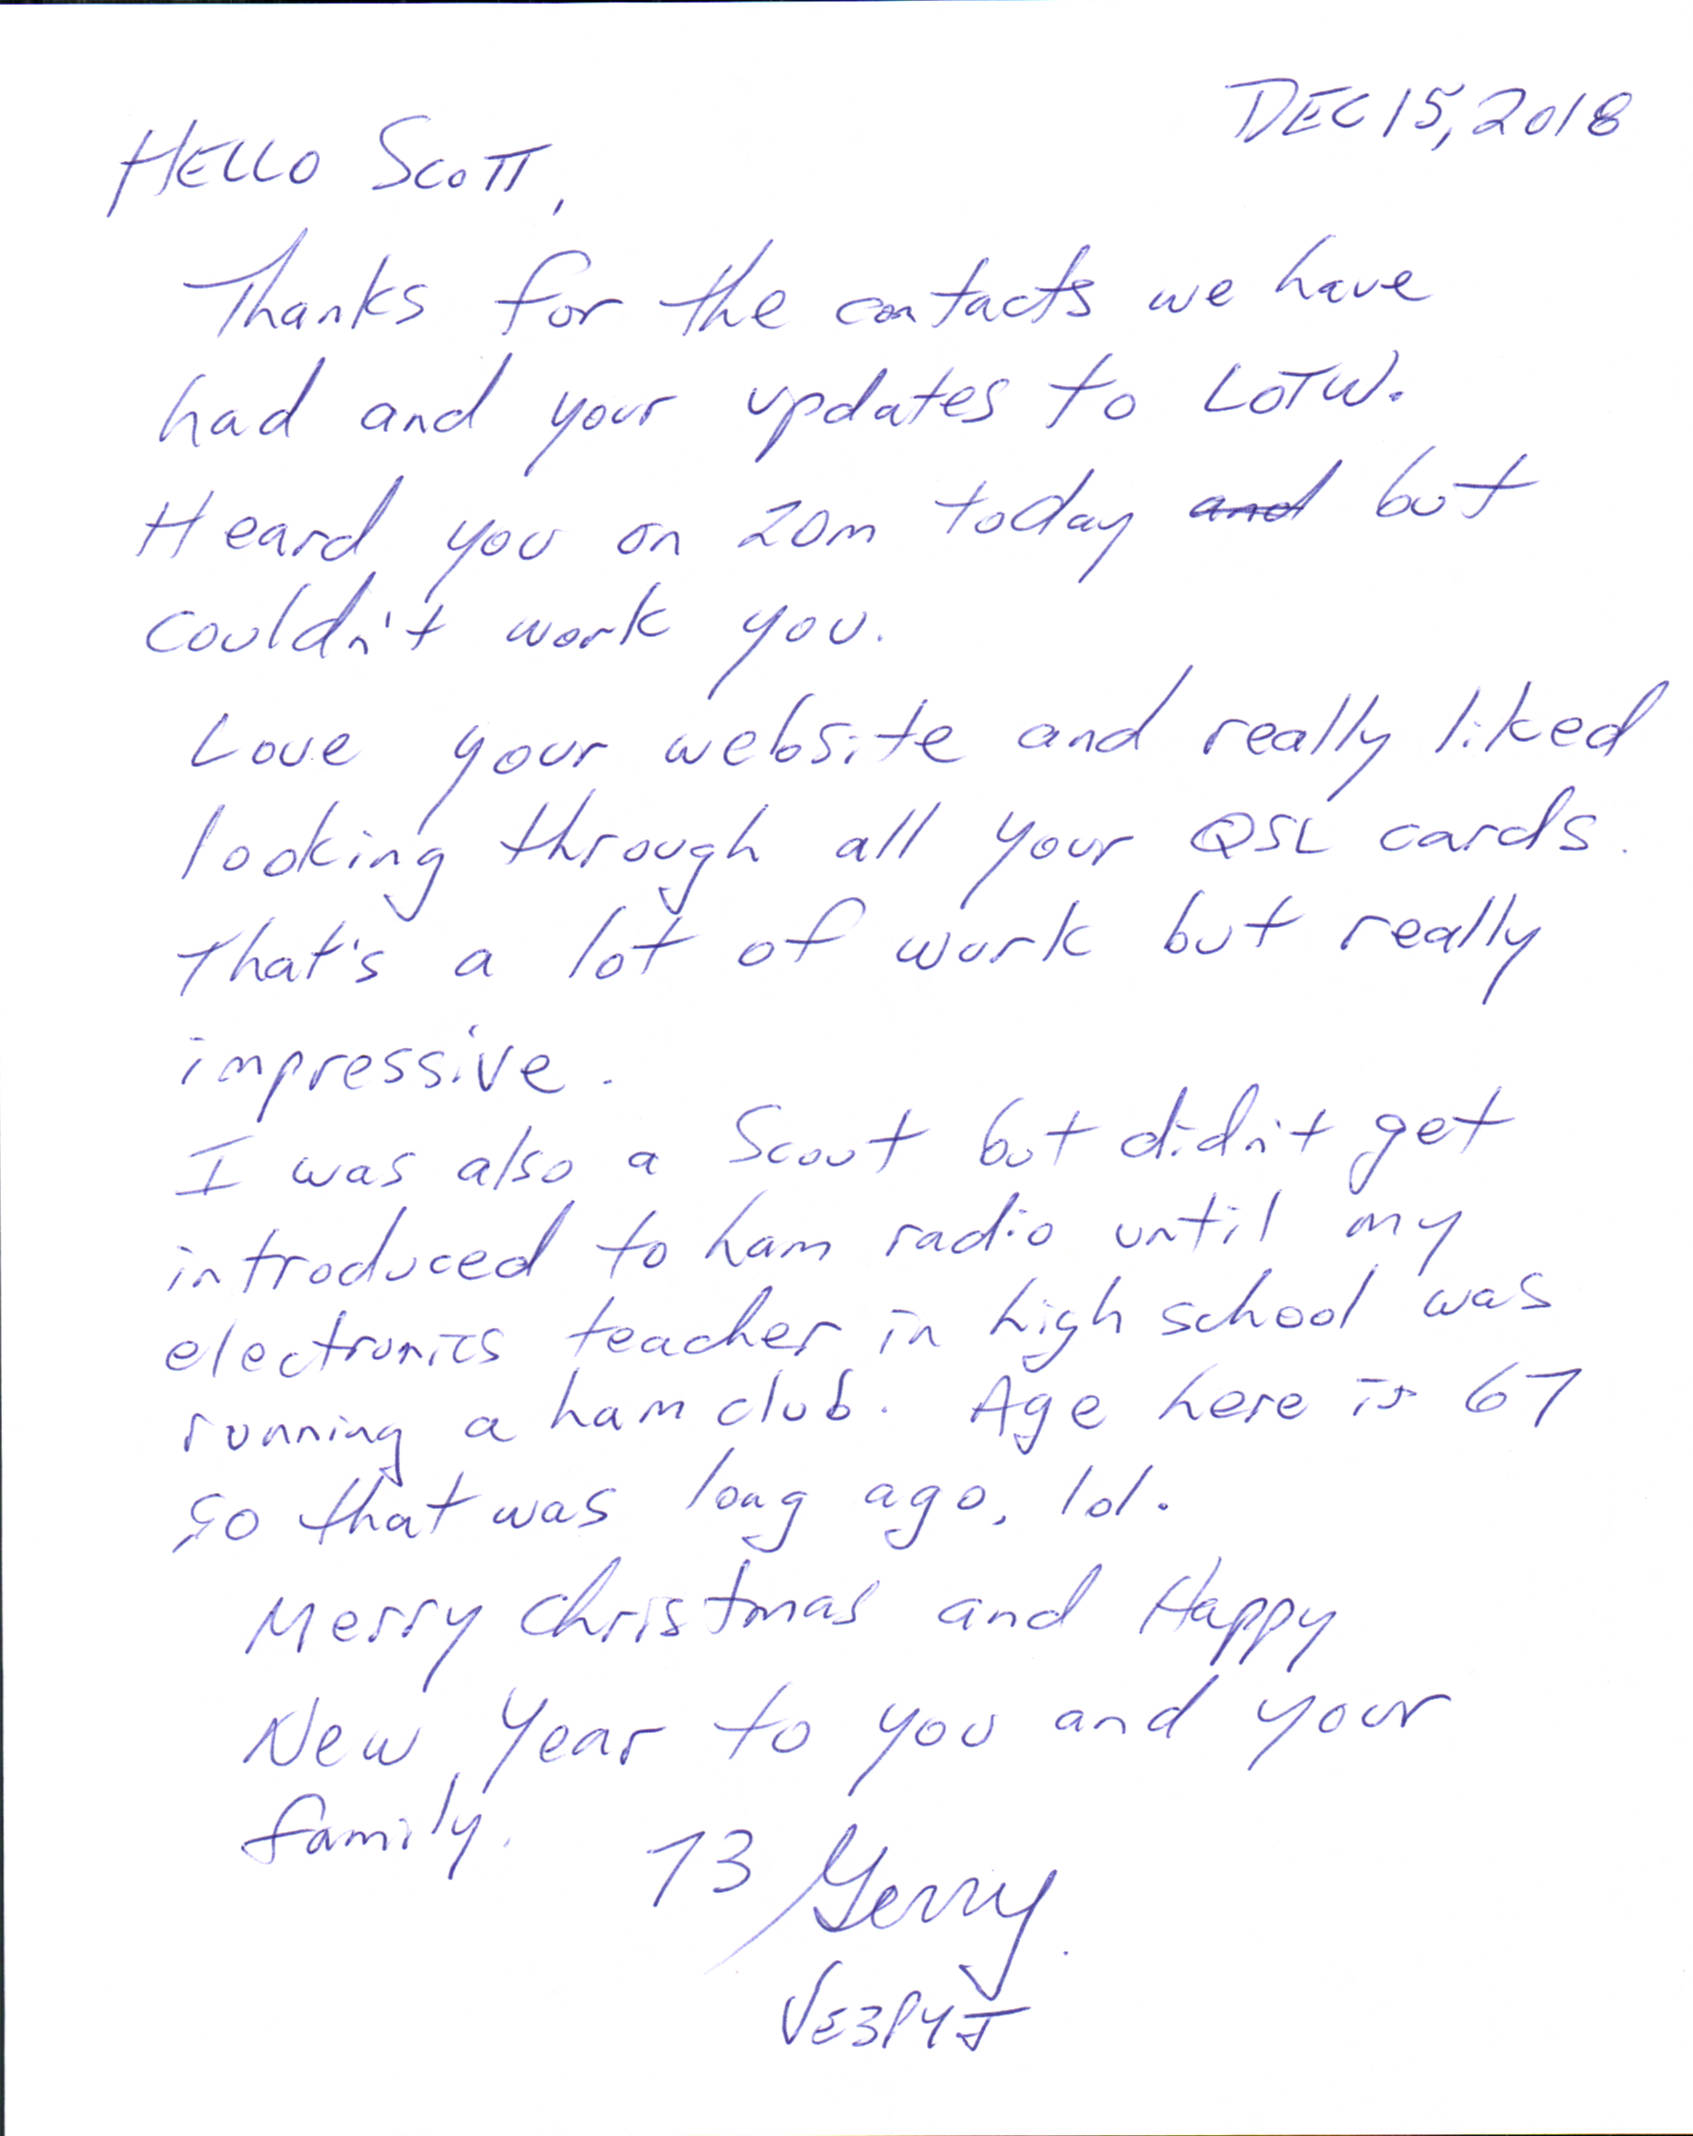 DEC 15, 2018
HELLO SCOTT,
Thanks for the contacts we have
had and your updates to LOTW.
Heard you on 20m today and but
couldn't work you.
Love your website and really liked
looking through all your QSL cards.
That's a lot of work but really
impressive.
I was also a Scout but didn't get
introduced to ham radio until my
electronics teacher in high school was
running a ham club. Age here is 67
so that was long ago, lol.
Merry Christmas and Happy
New Year to you and your
family.
73 Gerry
VE3PYJ